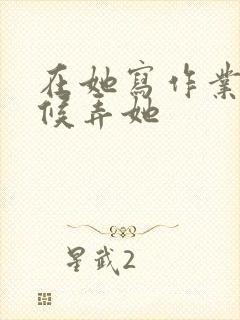 在她寫作業
候弄她
星武2